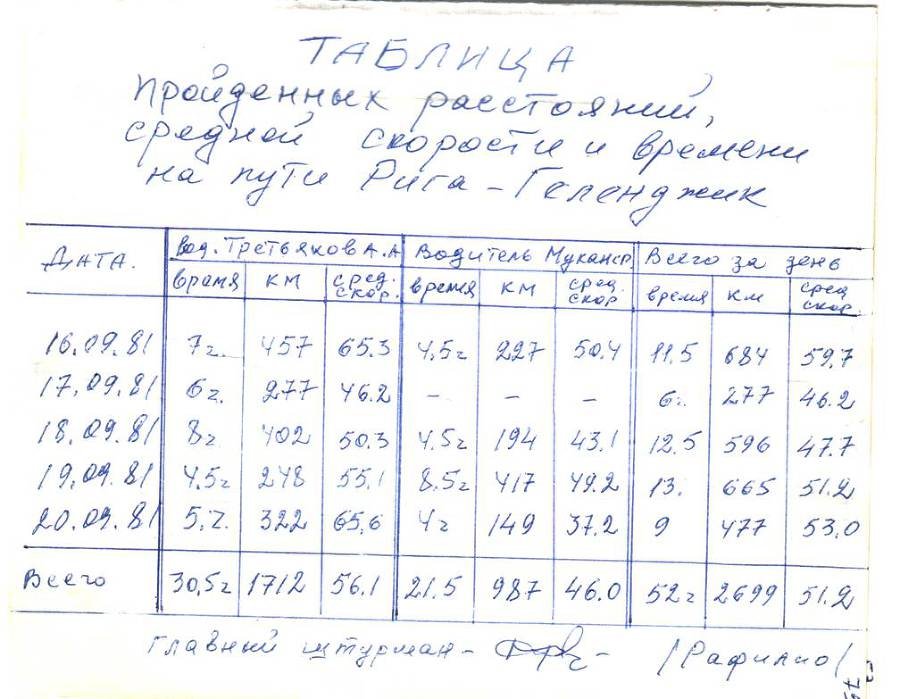 ТАБЛИЦА
пройденных расстояний,
средней скорости и времени
на пути Рига - Геленджик
ДАТА. Вод. Третьяков А.А Водитель Всего за день
время км сред. скор. время км сред. скор время км сред скор.
16.09.81 7ч. 457 65.3 4,5ч 227 50.4 11.5 684 59,7
17.09.81 6ч. 277 46.2 – – – 6ч. 277 46.2
18.09.81 8ч 402 50.3 4.5ч 194 43.1 12.5 596 47.7
19.09.81 4,5ч 248 55,1 8,5ч 417 49.2 13. 665 51.2
20.09.81 5.ч. 322 65,6 4ч 149 37.2 9 477 53,0
Всего 30,5ч 1712 56.1 21.5 987 46.0 52ч 2699 51.2
Главный штурман - - /Рафилио/